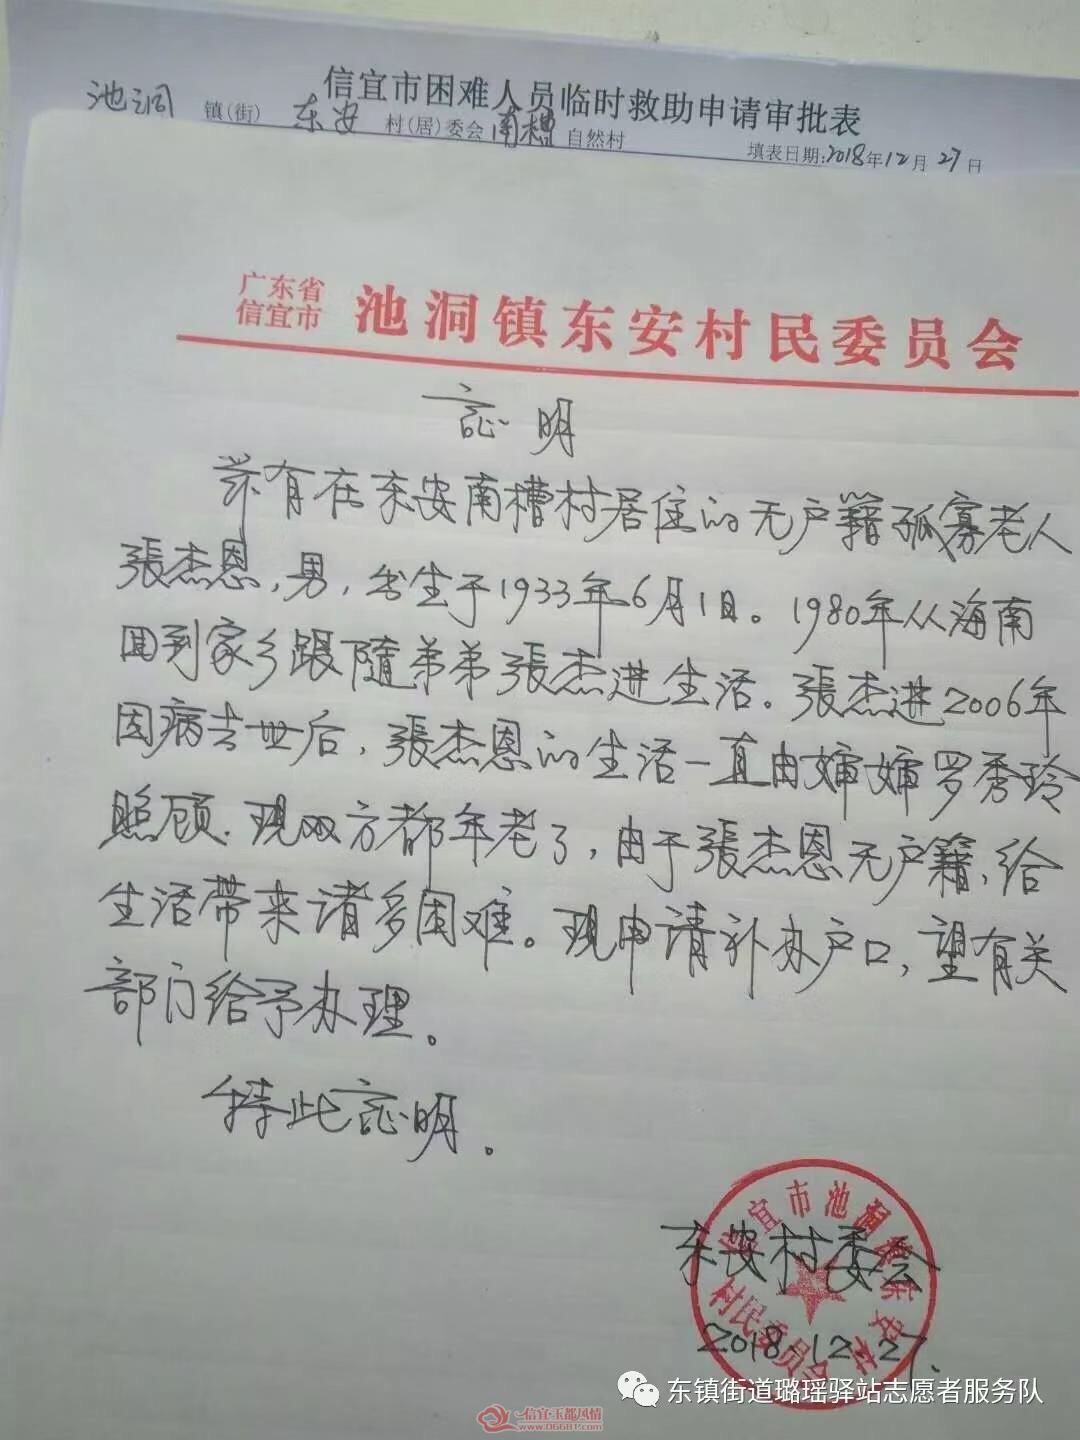 信宜市困难人员临时救助申请审批表
池洞 镇(街) 东安 村(居)委会 南槽 自然村
填表日期:2018年12月27日
广东省
信宜市
池洞镇东安村民委员会
証明
兹有在东安南槽村居住的无户籍孤寡老人
張杰恩,男,出生于1933年6月1日。1980年从海南
回到家乡跟随弟弟張杰进生活。張杰进2006年
因病去世后,張杰恩的生活一直由婶婶罗秀玲
照顾.现双方都年老了,由于張杰恩无户籍,给
生活带来诸多困难。现申请补办户口,望有关
部门给予办理。
特此証明。
信宜市池洞镇东安村
村民委员会
东安村委会
2018.12.27.
东镇街道璐瑶驿站志愿者服务队
信宜玉都风情
www.06681.com